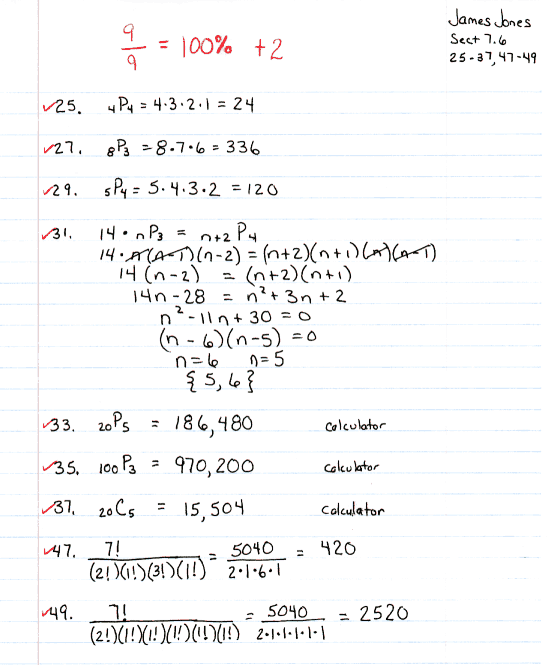 James Jones
Sect 7.6
25-37, 47-49
9/9 = 100% +2
✓25. ₄P₄ = 4·3·2·1 = 24
✓27. ₈P₃ = 8·7·6 = 336
✓29. ₅P₄ = 5·4·3·2 = 120
✓31. 14 · ₙP₃ = ₙ₊₂P₄
14·n(n-1)(n-2) = (n+2)(n+1)(n)(n-1)
14(n-2) = (n+2)(n+1)
14n-28 = n²+3n+2
n²-11n+30 = 0
(n-6)(n-5) = 0
n=6 n=5
{5,6}
✓33. ₂₀P₅ = 186,480 calculator
✓35. ₁₀₀P₃ = 970,200 calculator
✓37. ₂₀C₅ = 15,504 calculator
✓47. 7!/(2!)(1!)(3!)(1!) = 5040/2·1·6·1 = 420
✓49. 7!/(2!)(1!)(1!)(1!)(1!)(1!) = 5040/2·1·1·1·1·1 = 2520